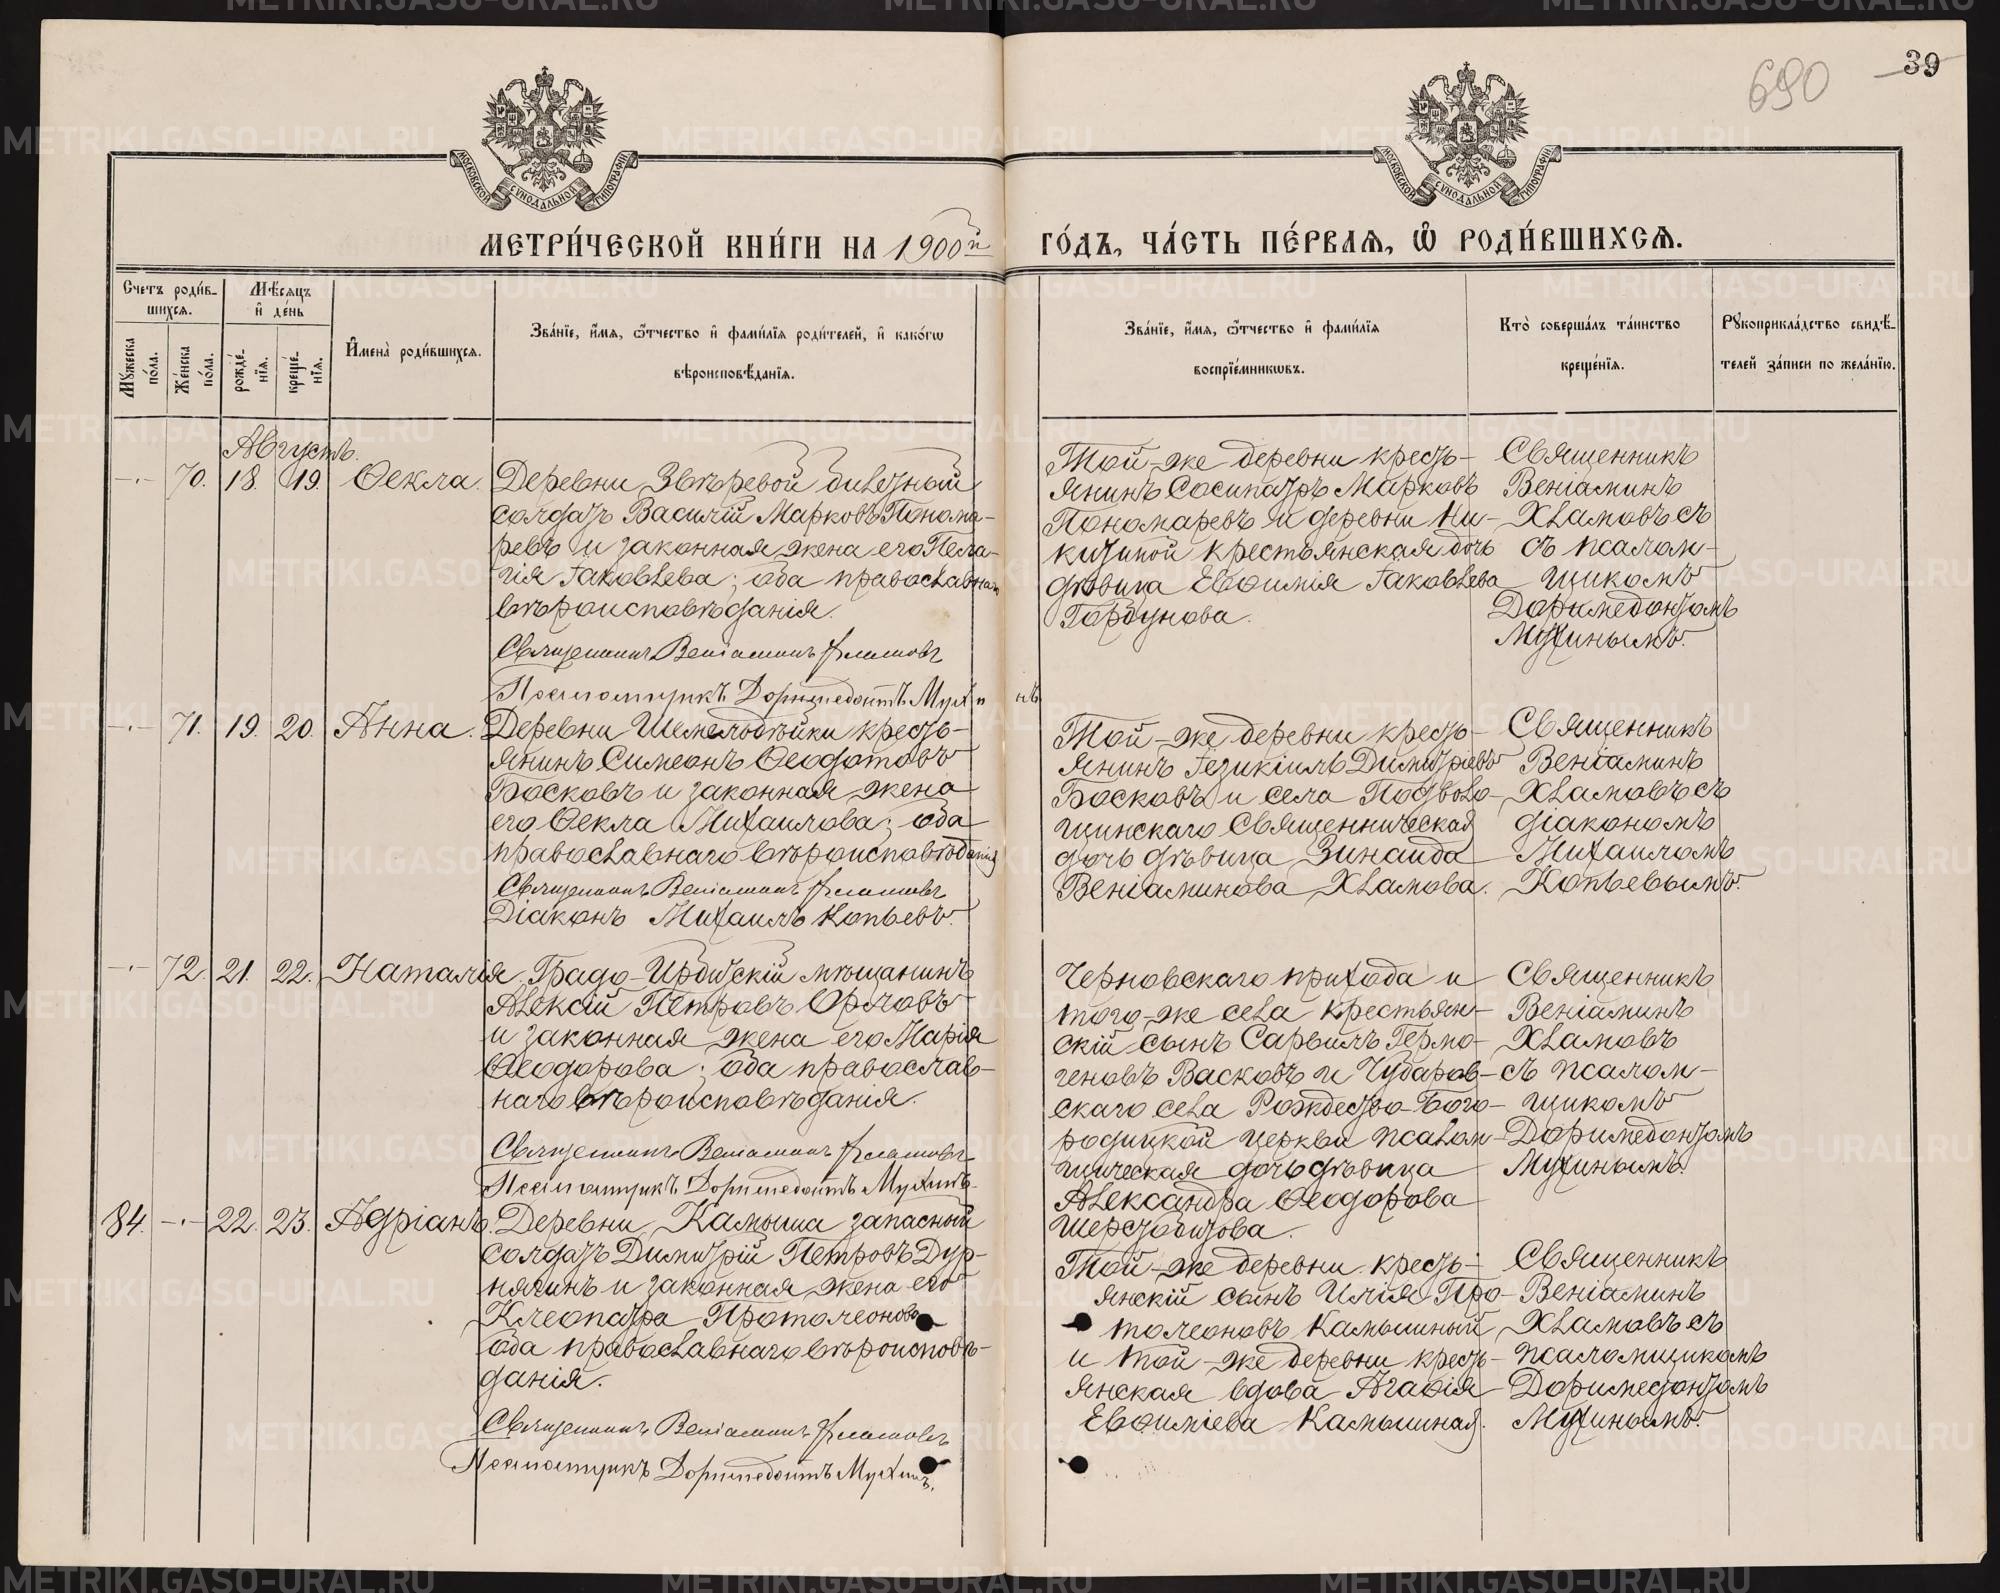 690
39
МОСКОВСКОЙ СѴНОДАЛЬНОЙ ТИПОГРАФІИ
МОСКОВСКОЙ СѴНОДАЛЬНОЙ ТИПОГРАФІИ
МЕТРИ́ЧЕСКОЙ КНИ́ГИ НА 1900й ГО́ДЪ, ЧА́СТЬ ПЕ́РВАЯ, Ѡ РОДИ́ВШИХСЯ.
Счетъ роди́в-
шихся.
Мѣ́сяцъ
и де́нь
Мꙋ́жеска по́ла.
Же́нска по́ла.
рожде́-
нїя.
креще́-
нїя.
Имена̀ роди́вшихся.
Зва́нїе, и́мя, ѻ́тчество и фами́лїя роди́телей, и како́гѡ
вѣроисповѣ́данїя.
Зва́нїе, и́мя, ѻ́тчество и фами́лїя
воспрїе́мникѡвъ.
Кто̀ соверша́лъ та́инство
креще́нїя.
Рꙋкоприкла́дство свидѣ́-
телей за́писи по жела́нїю.
Августъ.
-·- 70. 18. 19. Ѳекла.
Деревни Звѣревой билетный
солдатъ Василій Марковъ Понома-
ревъ и законная жена его Пела-
гія Іаковлева; оба православнаго
вѣроисповѣданія.
Священникъ Веніаминъ Хламовъ
Псаломщикъ Доримедонтъ Мухинъ
Той-же деревни кресть-
янинъ Сосипатръ Марковъ
Пономаревъ и деревни Ни-
китиной крестьянская дочь
дѣвица Евѳимія Іаковлева
Горбунова.
Священникъ
Веніаминъ
Хламовъ съ
съ псалом-
щикомъ
Доримедонтомъ
Мухинымъ.
-·- 71. 19. 20. Анна.
Деревни Шмелобойки кресть-
янинъ Симеонъ Ѳеодотовъ
Восковъ и законная жена
его Ѳекла Михаилова; оба
православнаго вѣроисповѣданія
Священникъ Веніаминъ Хламовъ
Діаконъ Михаилъ Копьевъ.
Той-же деревни кресть-
янинъ Іезикіиль Димитріевъ
Восковъ и села Подволо-
шинскаго Священническая
дочь дѣвица Зинаида
Веніаминова Хламова.
Священникъ
Веніаминъ
Хламовъ съ
діакономъ
Михаиломъ
Копьевымъ.
-·- 72. 21. 22. Наталія.
Градо-Ирбитскій мѣщанинъ
Алексій Петровъ Орловъ
и законная жена его Марія
Ѳеодорова; оба православ-
наго вѣроисповѣданія.
Священникъ Веніаминъ Хламовъ
Псаломщикъ Доримедонтъ Мухинъ.
Черновскаго прихода и
того-же села крестьян-
скій сынъ Сарвилъ Гермо-
геновъ Васковъ и Чубаров-
скаго села Рождество-Бого-
родицкой церкви псалом-
щическая дочь дѣвица
Александра Ѳеодорова
Шерстобитова.
Священникъ
Веніаминъ
Хламовъ
съ псалом-
щикомъ
Доримедонтомъ
Мухинымъ.
84. -·- 22. 23. Адріанъ.
Деревни Камыша запасный
солдатъ Димитрій Петровъ Дур-
нягинъ и законная жена его
Клеопатра Протолеонова
оба православнаго вѣроисповѣ-
данія.
Священникъ Веніаминъ Хламовъ
Псаломщикъ Доримедонтъ Мухинъ.
Той-же деревни кресть-
янскій сынъ Илія Про-
толеоновъ Камышный
и той-же деревни кресть-
янская вдова Агаѳія
Евѳиміева Камышная.
Священникъ
Веніаминъ
Хламовъ съ
псаломщикомъ
Доримедонтомъ
Мухинымъ.
METRIKI.GASO-URAL.RU